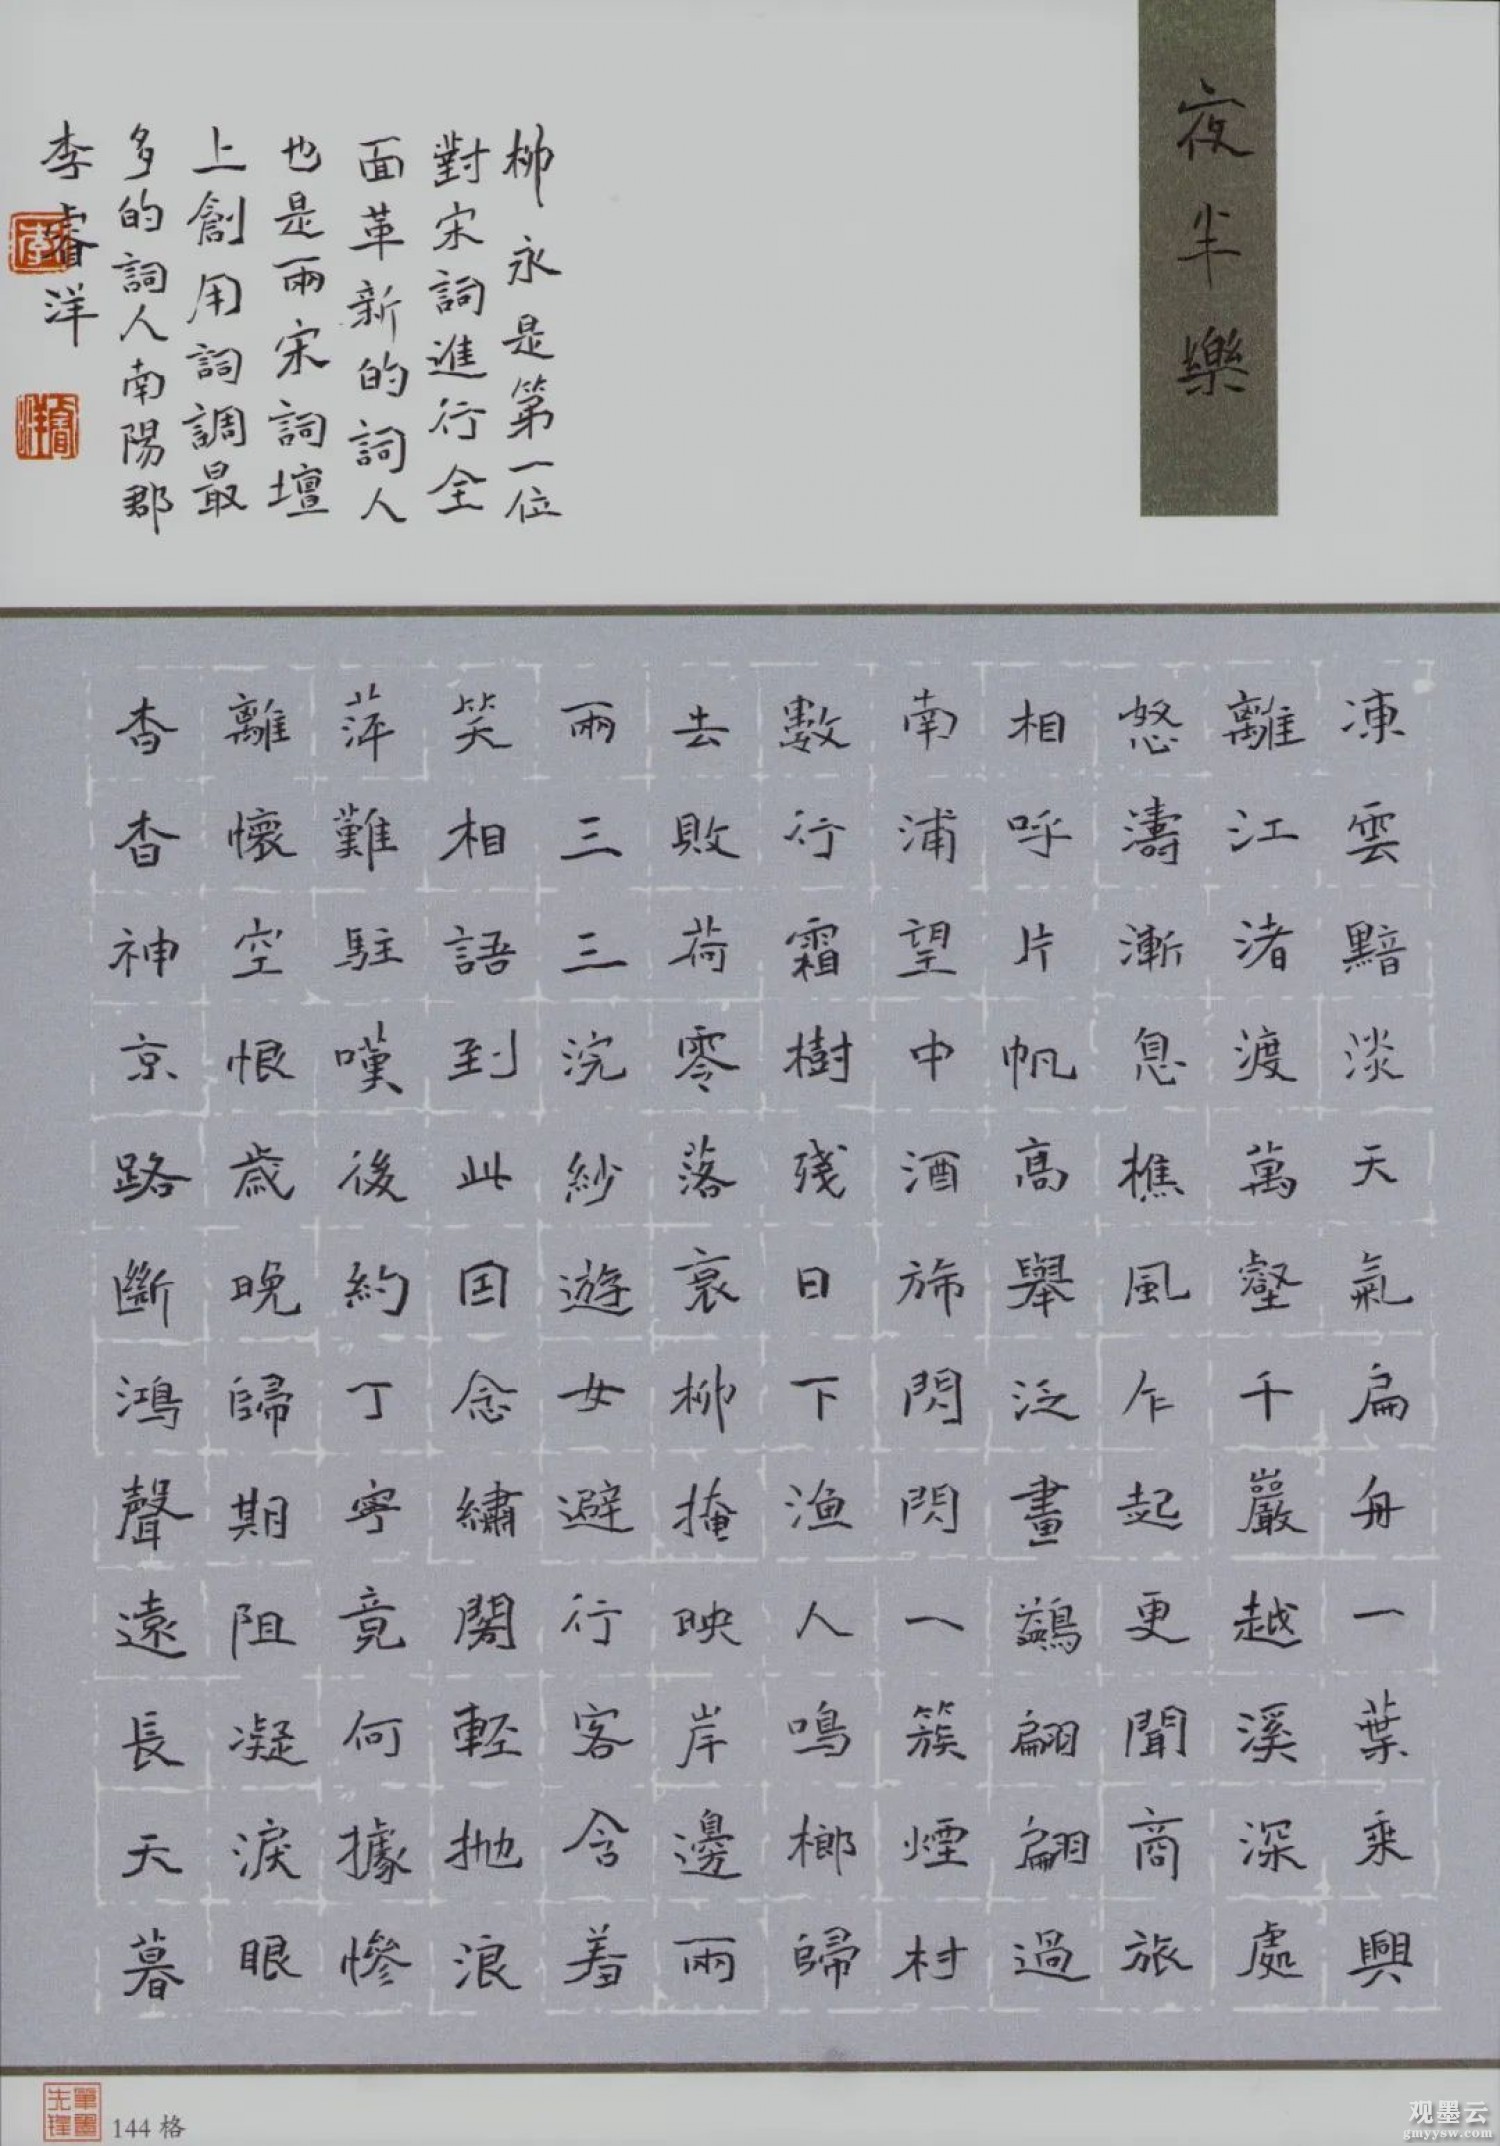 夜半樂
凍雲黯淡天氣扁舟一葉乘興
離江渚渡萬壑千巖越溪深處
怒濤漸息樵風乍起更聞商旅
相呼片帆高舉泛畫鷁翩翩過
南浦望中酒旆閃閃一簇煙村
數行霜樹殘日下漁人鳴榔歸
去敗荷零落衰柳掩映岸邊兩
兩三三浣紗遊女避行客含羞
笑相語到此因念繡閣輕抛浪
萍難駐嘆後約丁寧竟何據慘
離懷空恨歲晚歸期阻凝淚眼
杳杳神京路斷鴻聲遠長天暮
柳永是第一位
對宋詞進行全
面革新的詞人
也是兩宋詞壇
上創用詞調最
多的詞人南陽郡
李睿洋
李
睿洋
筆墨先鋒
144格
观墨云
gmyysw.com